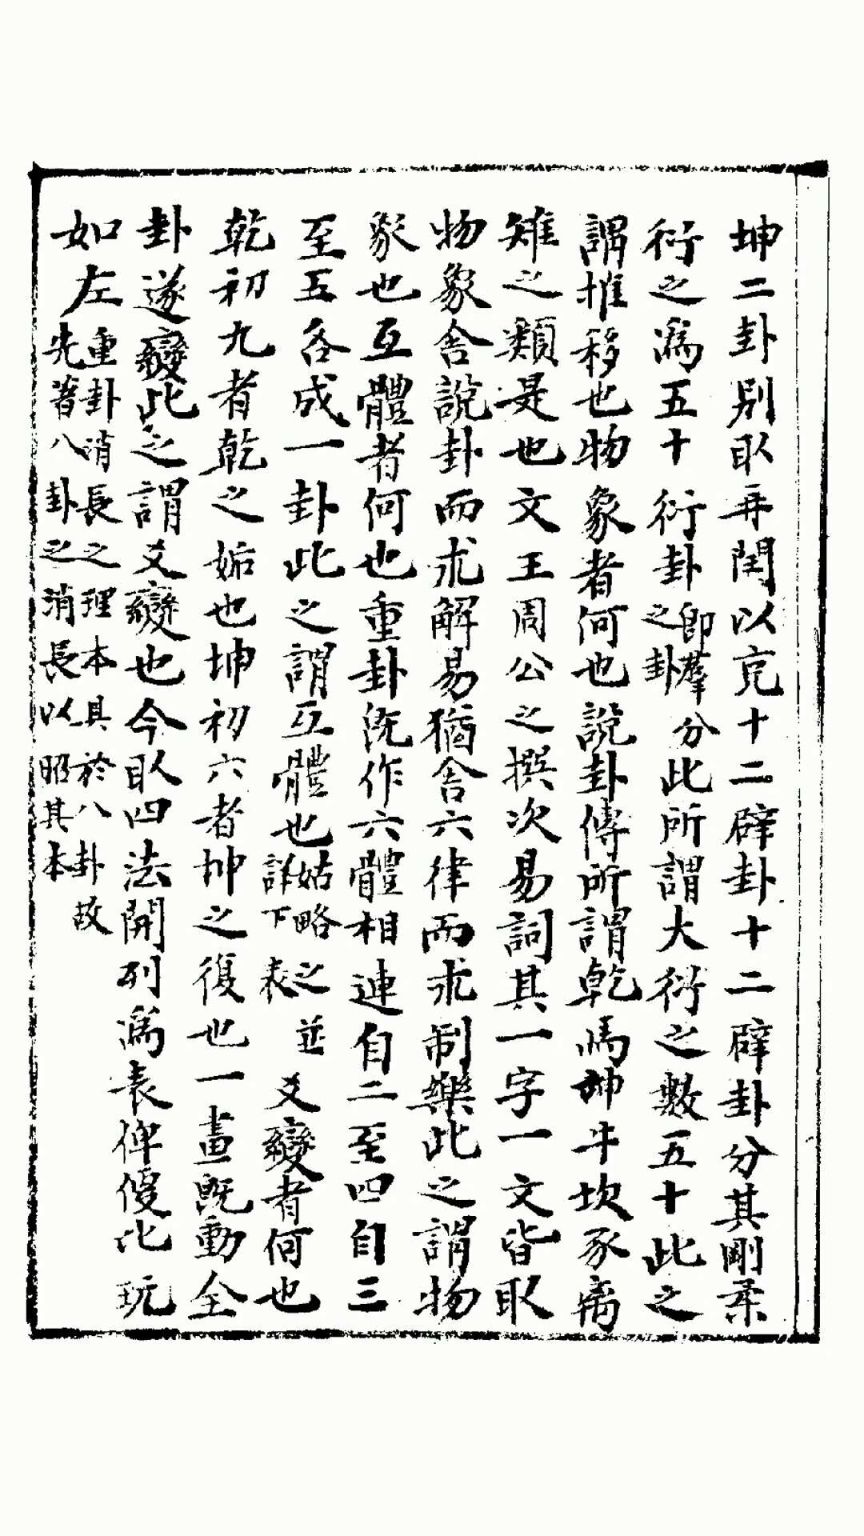 坤二卦別取再閏以克十二辟卦十二辟卦分其剛柔
衍之爲五十衍卦卽羣分之卦此所謂大衍之數五十此之
謂推移也物象者何也說卦傳所謂乾馬坤牛坎豕离
雉之類是也文王周公之撰次易詞其一字一文皆取
物象舍說卦而求解易猶舍六律而求制樂此之謂物
象也互體者何也重卦旣作六體相連自二至四自三
至五各成一卦此之謂互體也姑略之並詳下表爻變者何也
乾初九者乾之姤也坤初六者坤之復也一畫旣動全
卦遂變此之謂爻變也今取四法開列爲表俾便比玩
如左重卦消長之理本具於八卦故先著八卦之消長以昭其本